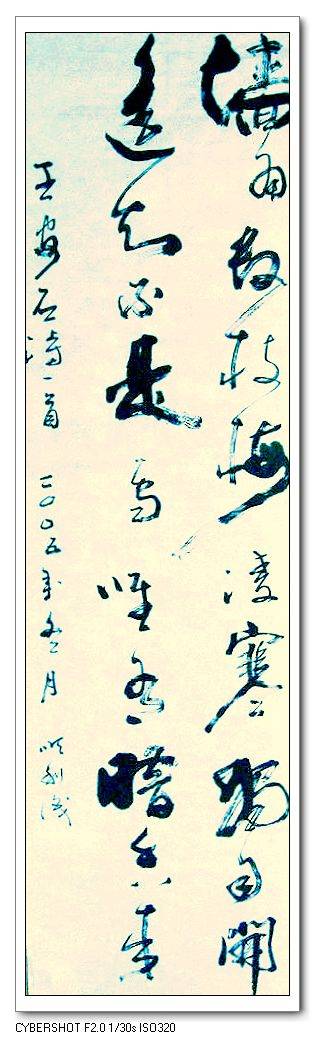 墙角数枝梅凌寒獨自開
遥知不是雪唯有暗香来
王安石诗一首 二〇〇五年冬月
CYBERSHOT F2.0 1/30s ISO320